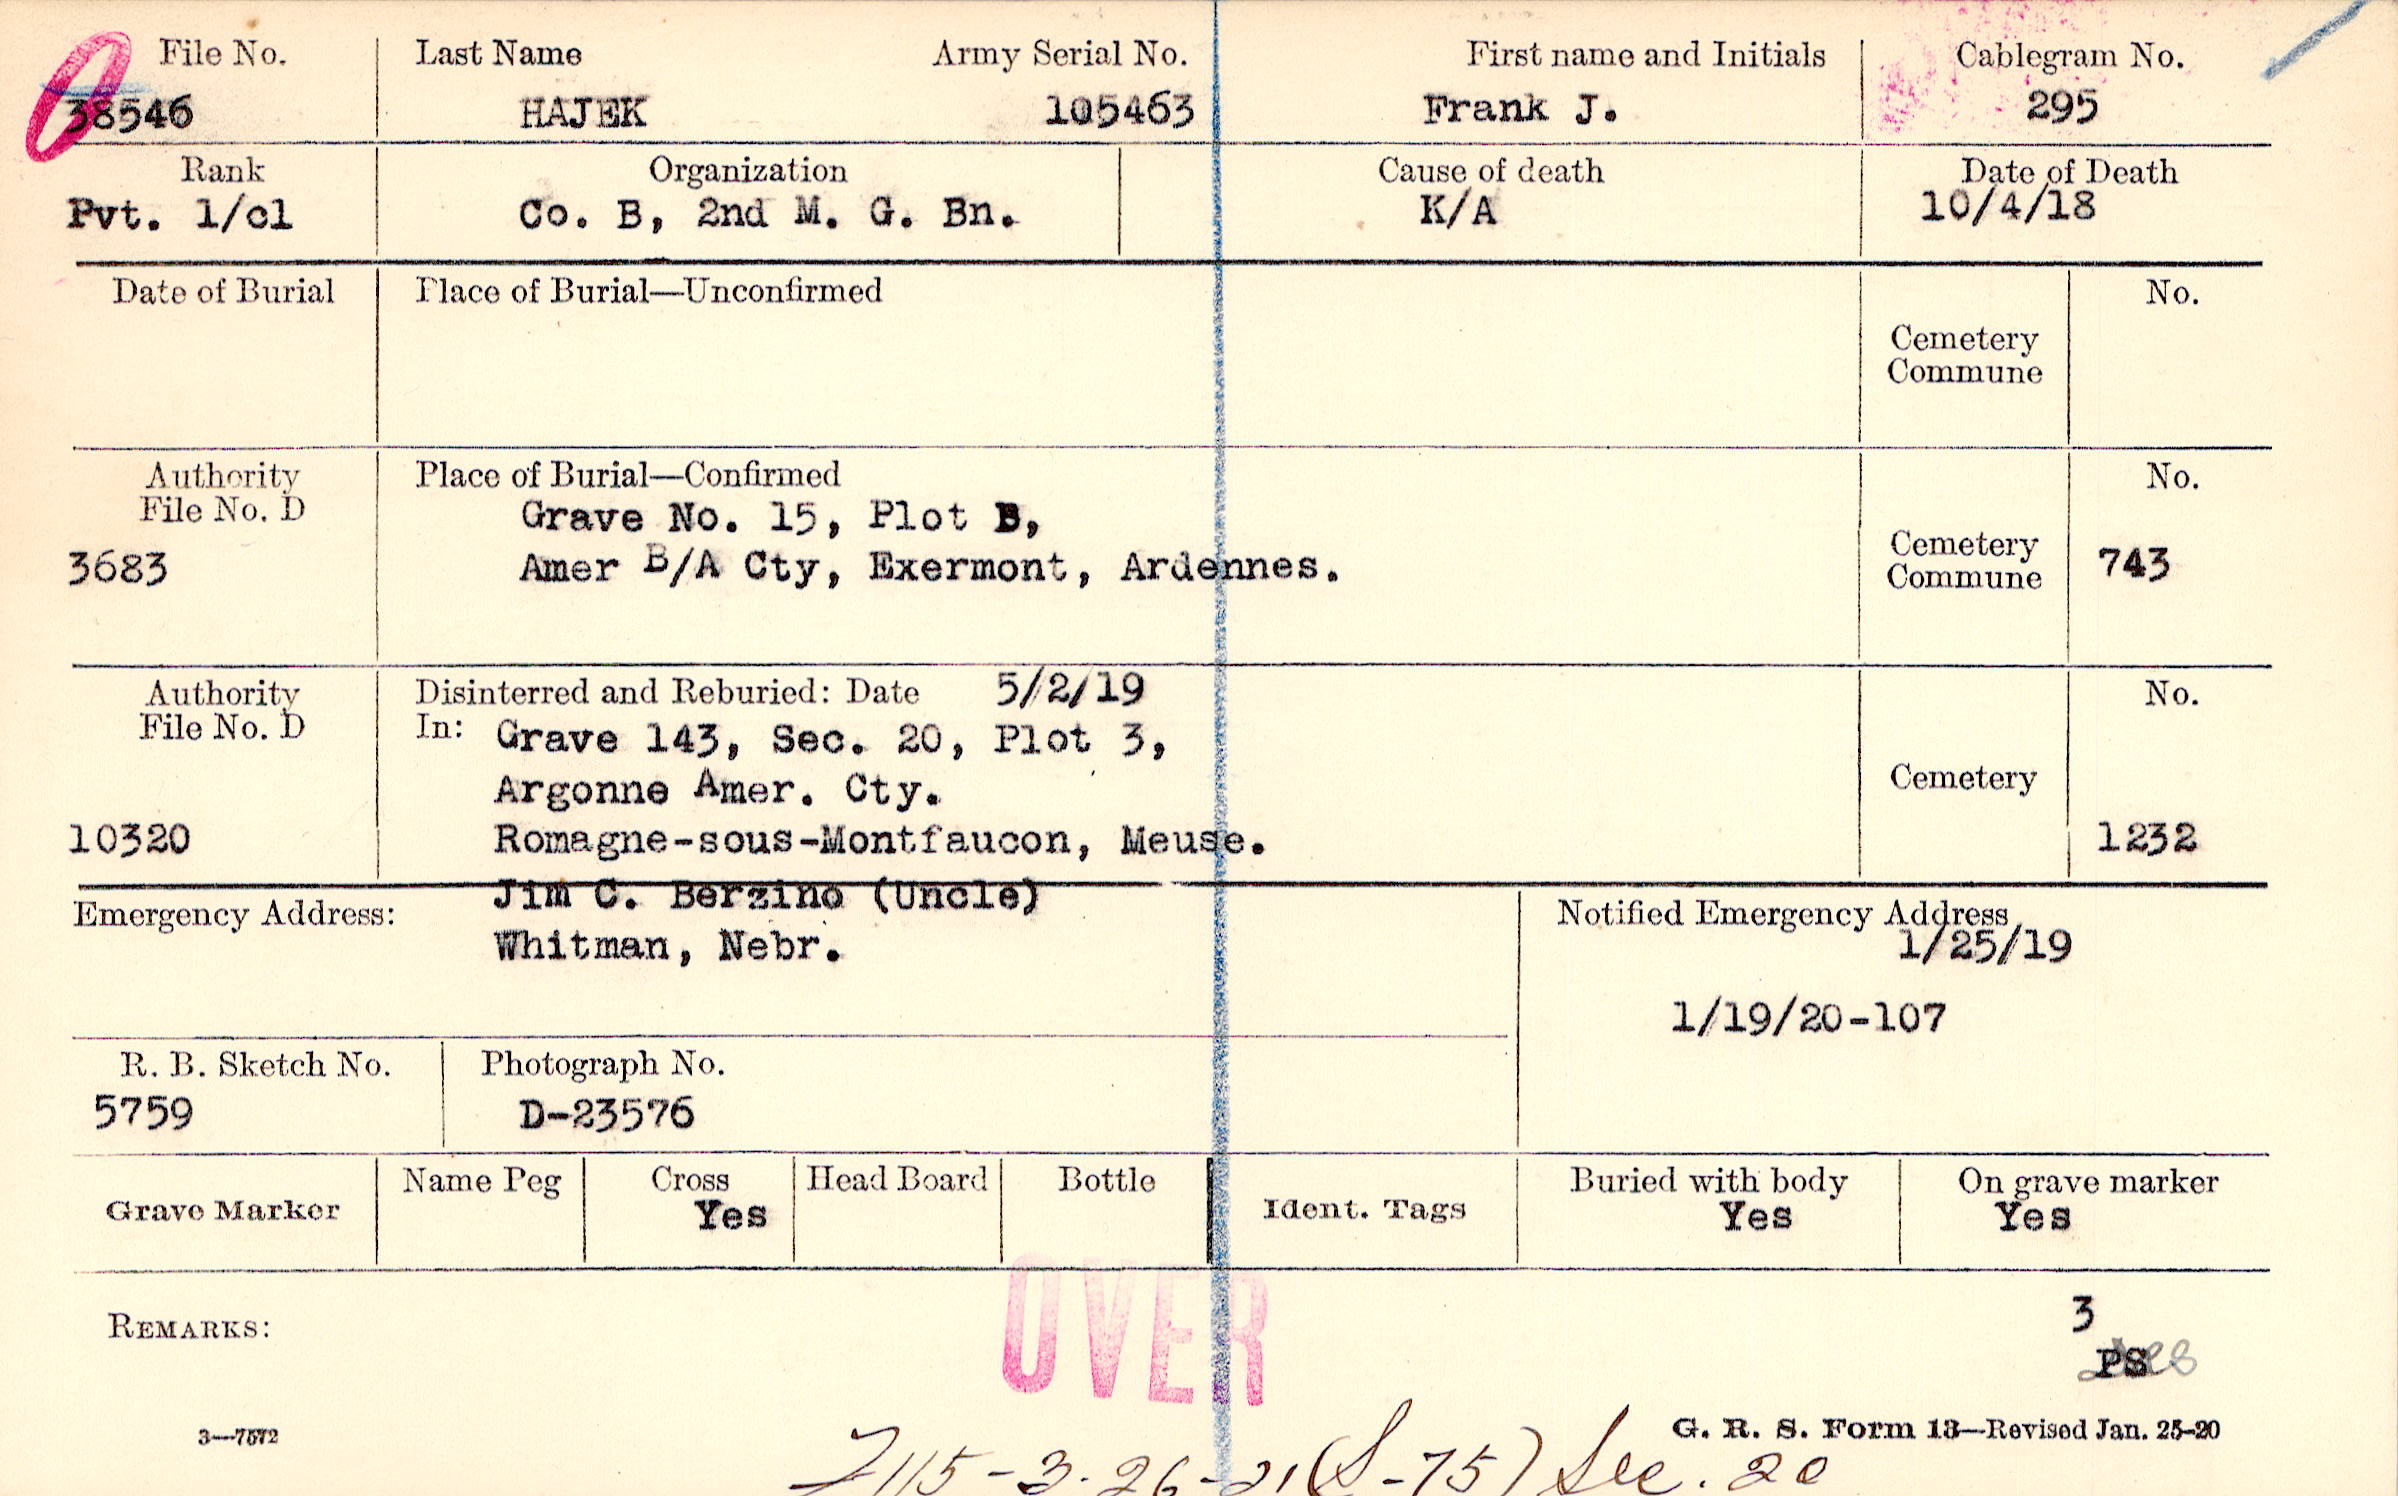 File No. Last Name Army Serial No. First name and Initials Cablegram No.
38546 HAJEK 105463 Frank J. 295
Rank Organization Cause of death Date of Death
Pvt. 1/cl Co. B, 2nd M. G. Bn. K/A 10/4/18
Date of Burial Place of Burial—Unconfirmed No.
Cemetery
Commune
Authority Place of Burial—Confirmed No.
File No. D Grave No. 15, Plot B,
3683 Amer B/A Cty, Exermont, Ardennes. Cemetery
Commune 743
Authority Disinterred and Reburied: Date 5/2/19 No.
File No. D In: Grave 143, Sec. 20, Plot 3,
Argonne Amer. Cty. Cemetery
10320 Romagne-sous-Montfaucon, Meuse. 1232
Emergency Address: Jim C. Berzino (Uncle) Notified Emergency Address
Whitman, Nebr. 1/25/19
1/19/20-107
R. B. Sketch No. Photograph No.
5759 D-23576
Grave Marker Name Peg Cross Head Board Bottle Ident. Tags Buried with body On grave marker
Yes Yes Yes
OVER
REMARKS: 3
PS
3—7572 G. R. S. Form 13—Revised Jan. 25-20
115-3-26-21 (S-75) Sec. 20